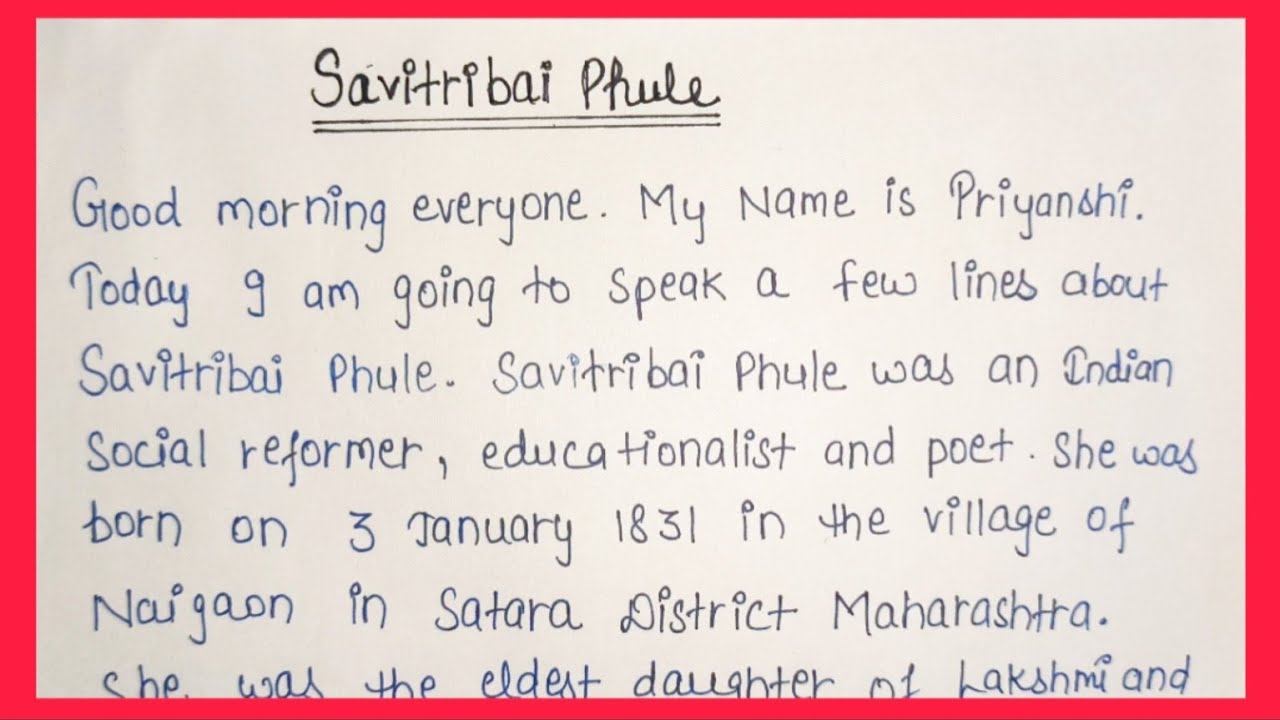 Savitribai Phule
Good morning everyone. My Name is Priyanshi.
Today I am going to speak a few lines about
Savitribai Phule. Savitribai Phule was an Indian
Social reformer, educationalist and poet. She was
born on 3 January 1831 in the village of
Naigaon in Satara District Maharashtra.
She was the eldest daughter of Lakshmi and